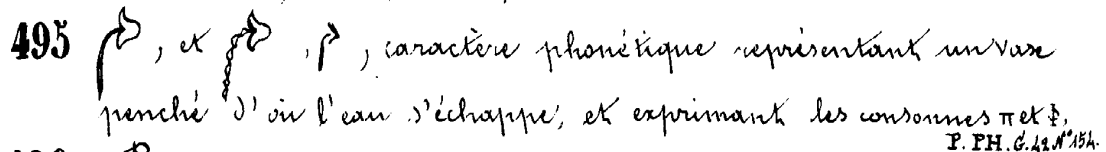 495 , et , , caractère phonétique représentant un vase
penché d'où l'eau s'échappe, et exprimant les consonnes π et Φ,
P. PH. G. 42 N° 154.